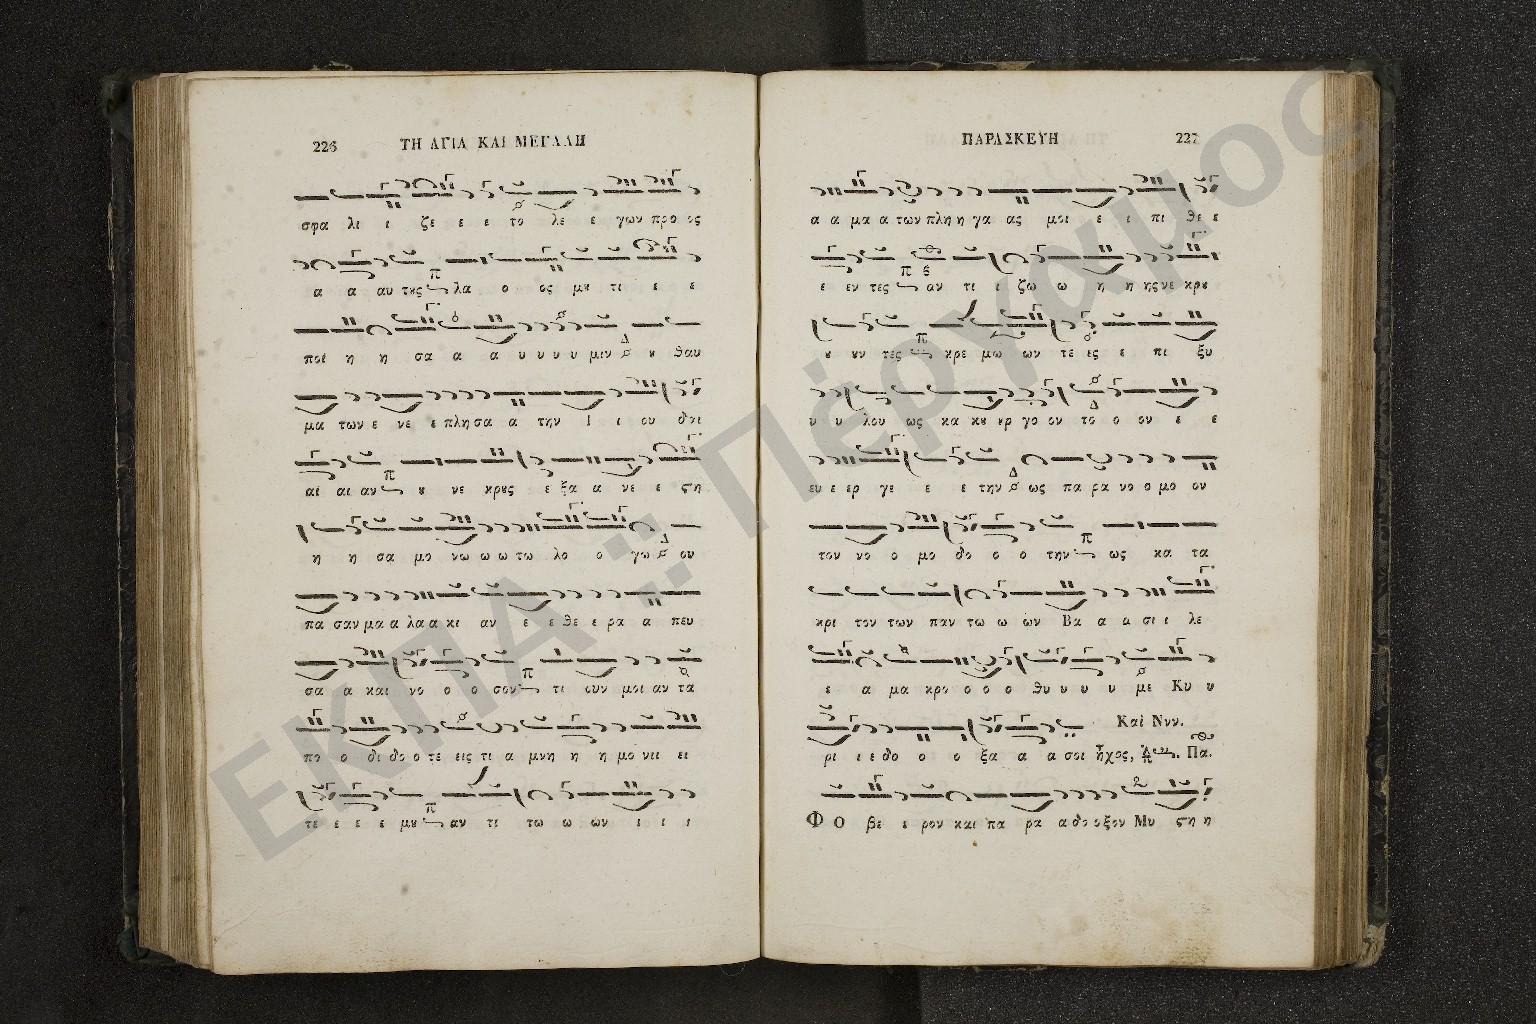 226 ΤΗ ΑΓΙΑ ΚΑΙ ΜΕΓΑΛΗ
σφα λι ι ζε ε ε το λε ε γων προ ος
α α αυ τους λα ο ος μου τι ε ε
ποι η η σα α α υ υ υ υ μιν Δ ου θαυ
μα των ε νε ε πλη σα α την Ι ι ου δαι
αι αι αν π ου νε κρους ε ξα α νε ε στη
η η σα μο νω ω ω τω λο ο γω Δ ου
πα σαν μα α λα α κι αν ε ε θε ε ρα α πευ
σα α και νο ο ο σον π τι ουν μοι αν τα
πο ο δι δο ο τε εις τι α μνη η η μο νει ει
τε ε ε ε μου π αν τι τω ω ων ι ι ι
ΠΑΡΑΣΚΕΥΗ 227
α α μα α των πλη η γα ας μοι ε ι πι θε ε
ε εν τες π αν τι ι ζω ω η η ης νε κρου
ου ουν τες π κρε μω ων τε ες ε πι ξυ
υ υ λου ως κα κου ουρ γο ον το ο ον ε ε
ευ ε ερ γε ε ε την Δ ως πα ρα νο ο μο ον
τον νο ο μο δο ο ο την π ως κα τα
κρι τον των παν τω ω ων Βα α α σι ι λε
ε α μα κρο ο ο ο θυ υ υ υ με Κυ υ
ρι ι ε δο ο ο ξα α α σοι Και Νυν.
ἦχος, Πα.
Φ ο βε ε ρον και πα ρα α δο οξον Μυ στη η
ΕΚΠΑ :: Πέργαμος